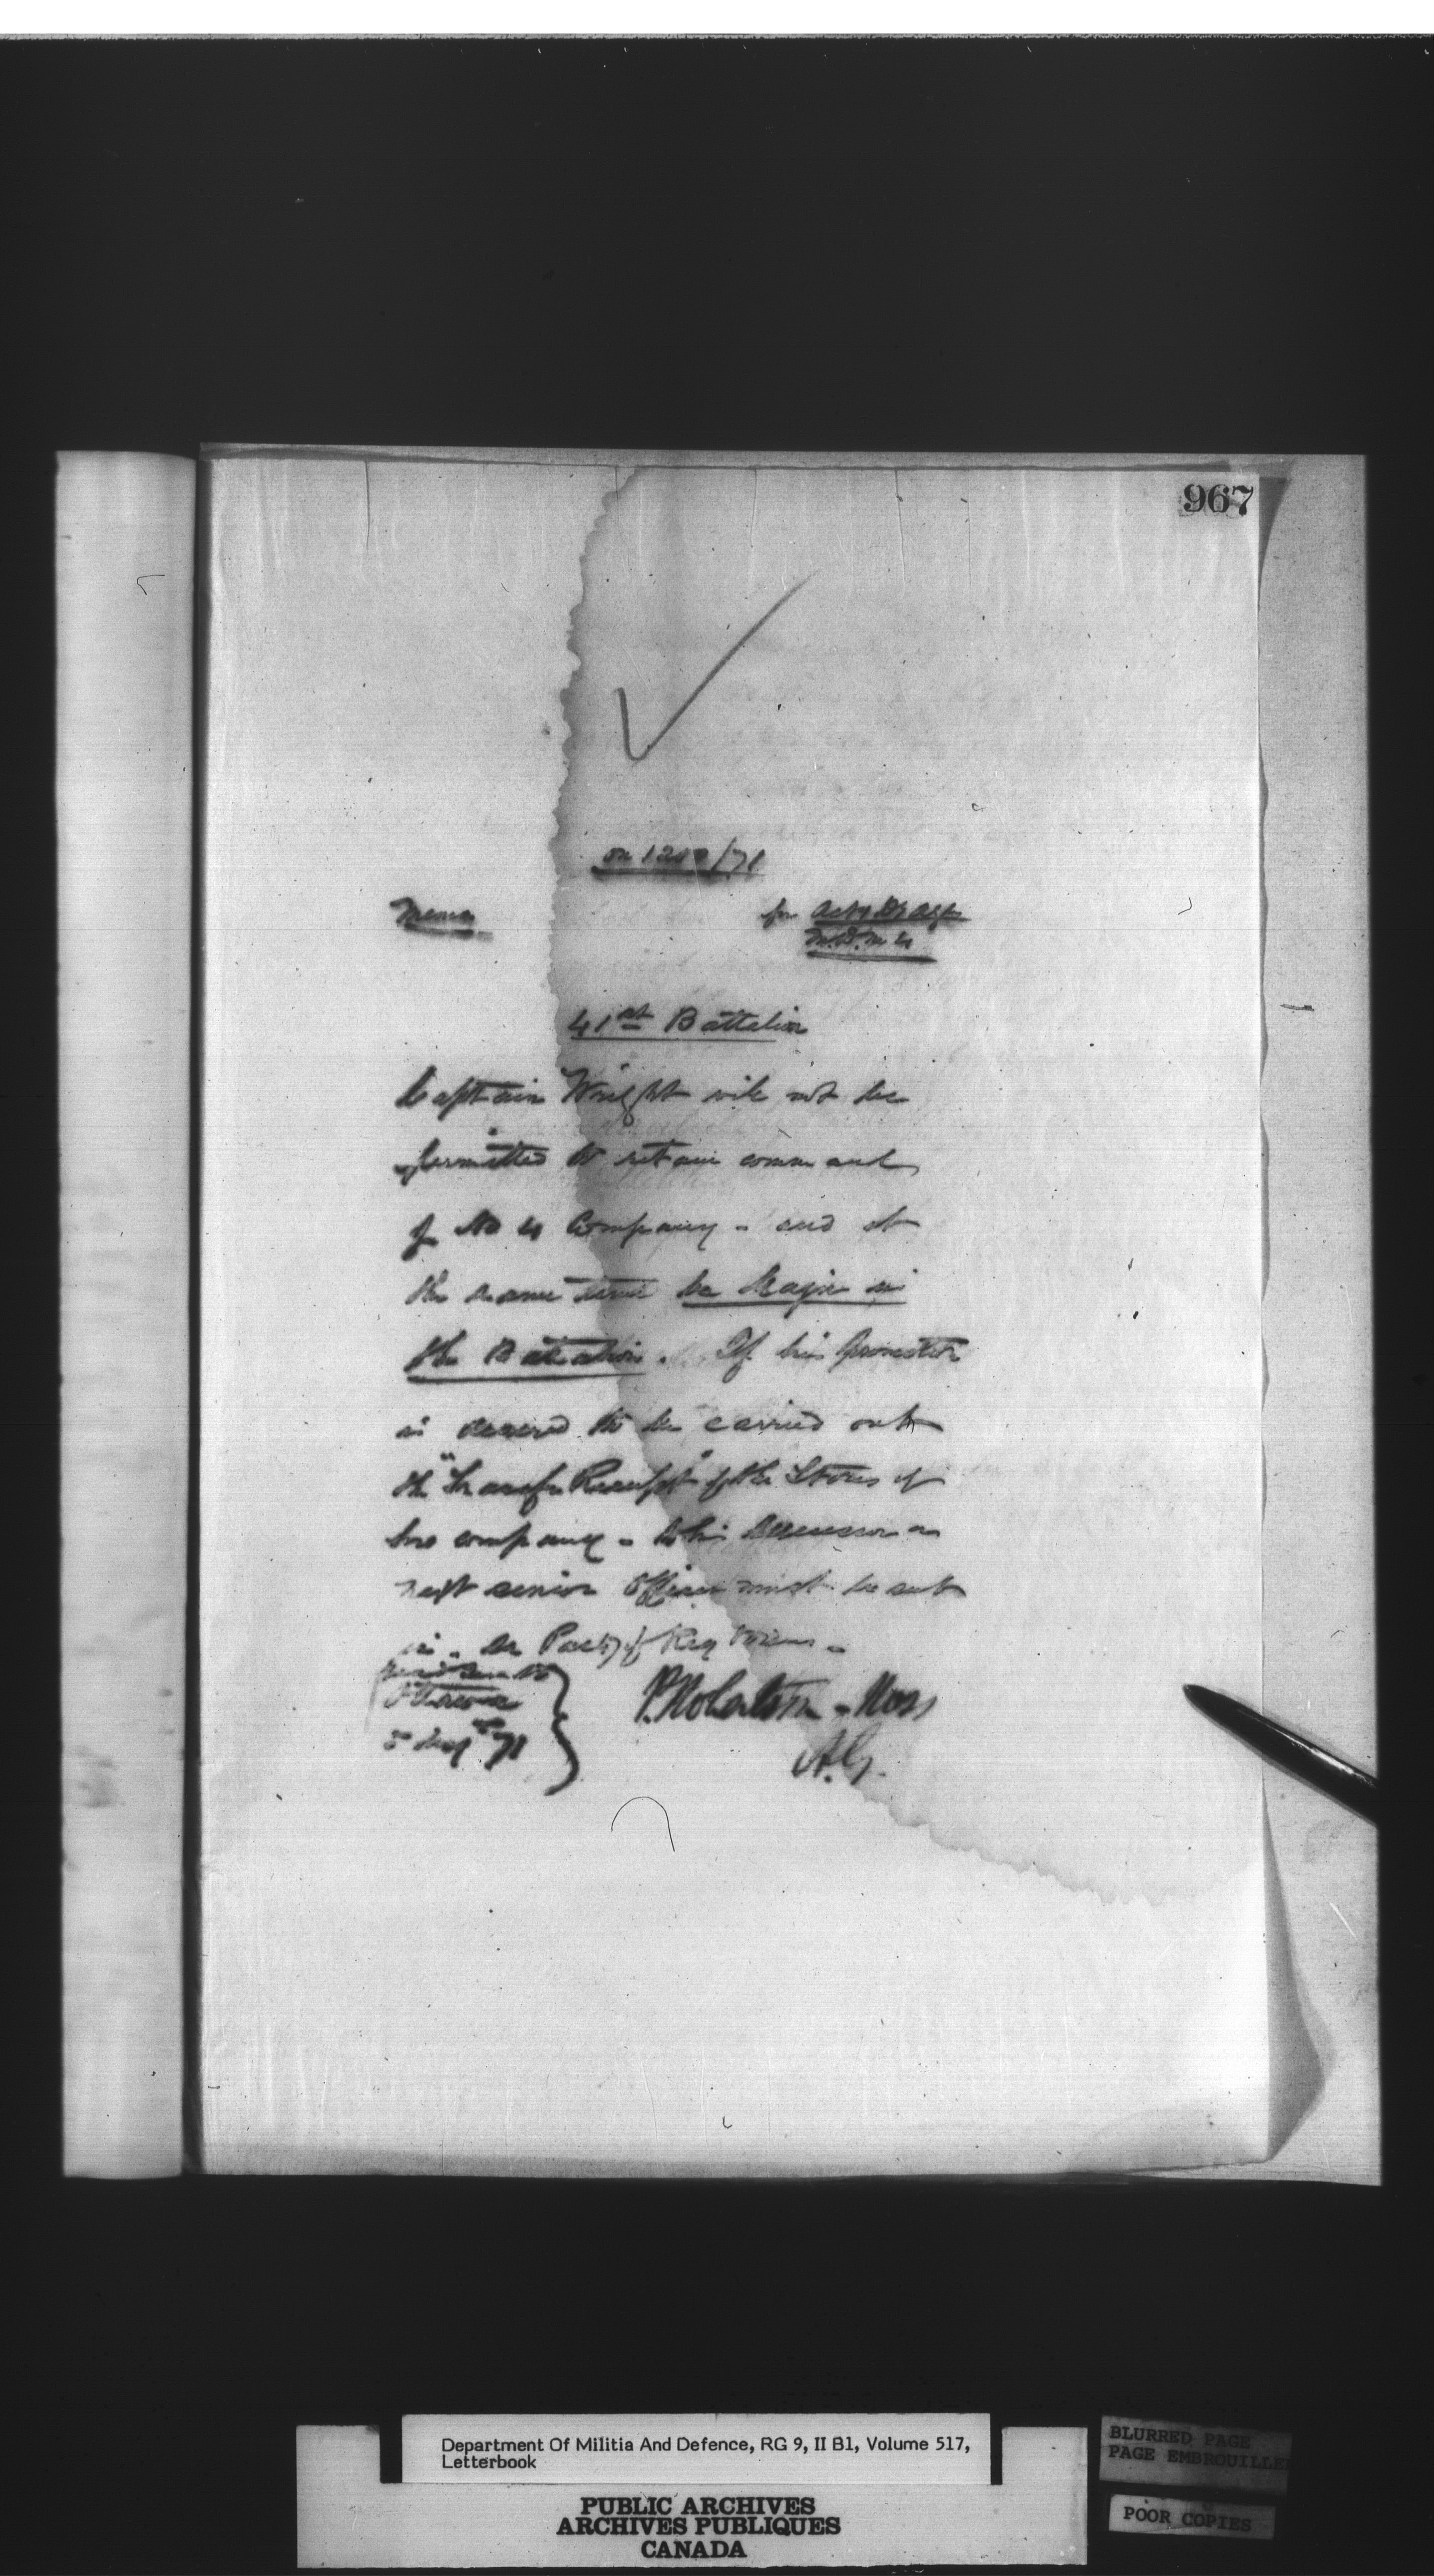 967
on 1200/71
Memo
for Actg D. A. G.
M.D. No 4
41st Battalion
Captain Wright will not be
permitted to retain command
of No 4 Company - and at
the same time be Major in
the Battalion. If his promotion
is desired to be carried out
the "Transfer Receipt" of the Stores of
his company - to his successor or
next senior officer must be sent
in.
Ottawa
5 71
P. Robertson-Ross
A.G.
Department Of Militia And Defence, RG 9, II B1, Volume 517,
Letterbook
PUBLIC ARCHIVES
ARCHIVES PUBLIQUES
CANADA
BLURRED PAGE
PAGE EMBROUILLE
POOR COPIES